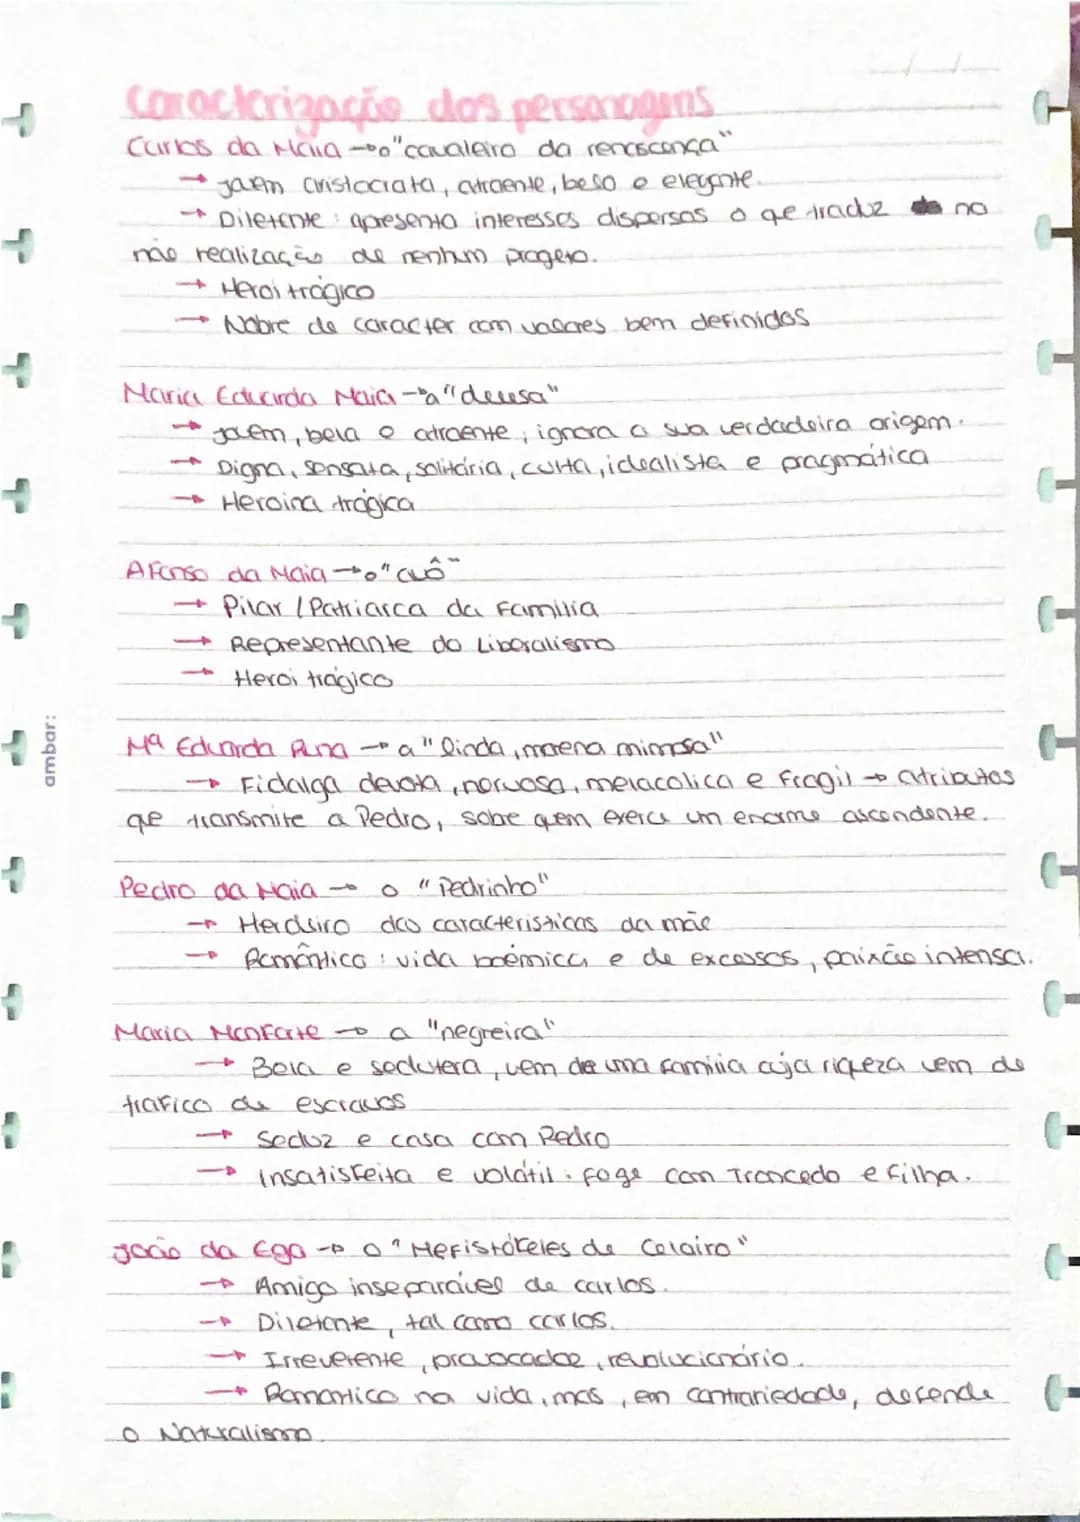 Caracterização das personagens
Carlos da Maia → o "cavaleiro da renascença"
→ jovem aristocrata, atraente, belo e elegante.
→ Diletante : apresenta interesses dispersos o que traduz na
não realização de nenhum progeto.
→ Heroi trágico
→ Nobre de caracter com valores bem definidos
Maria Eduarda Maia → a "deusa"
→ jovem, bela e atraente, ignora a sua verdadeira origem.
→ Digna, sensata, solitária, culta, idealista e pragmática
→ Heroina trágica
Afonso da Maia → o "avô"
→ Pilar / Patriarca da Familia
→ Representante do Liberalismo
→ Heroi trágico
Mª Eduarda Runa → a "linda, morena mimosa"
→ Fidalga devota, nervosa, melacolica e Fragil → atributos
que transmite a Pedro, sobe quem exerce um enorme ascendente.
Pedro da Maia → o "Pedrinho"
→ Herdeiro das caracteristicas da mãe
→ Romântico : vida boémica e de excessos, paixão intensa.
Maria Monforte → a "negreira"
→ Bela e sedutera, vem de uma Familia cuja riqueza vem do
trafico de escravos
→ Seduz e casa com Pedro
→ Insatisfeita e volátil : foge com Trancedo e filha.
João da Ega → o "Mefistófeles de Celairo"
→ Amigo inseparável de carlos.
→ Diletante, tal como carlos.
→ Irreverente, provocador, revolucionário.
→ Romantico na vida, mas, em contrariedade, defende
o Naturalismo.
ambar: